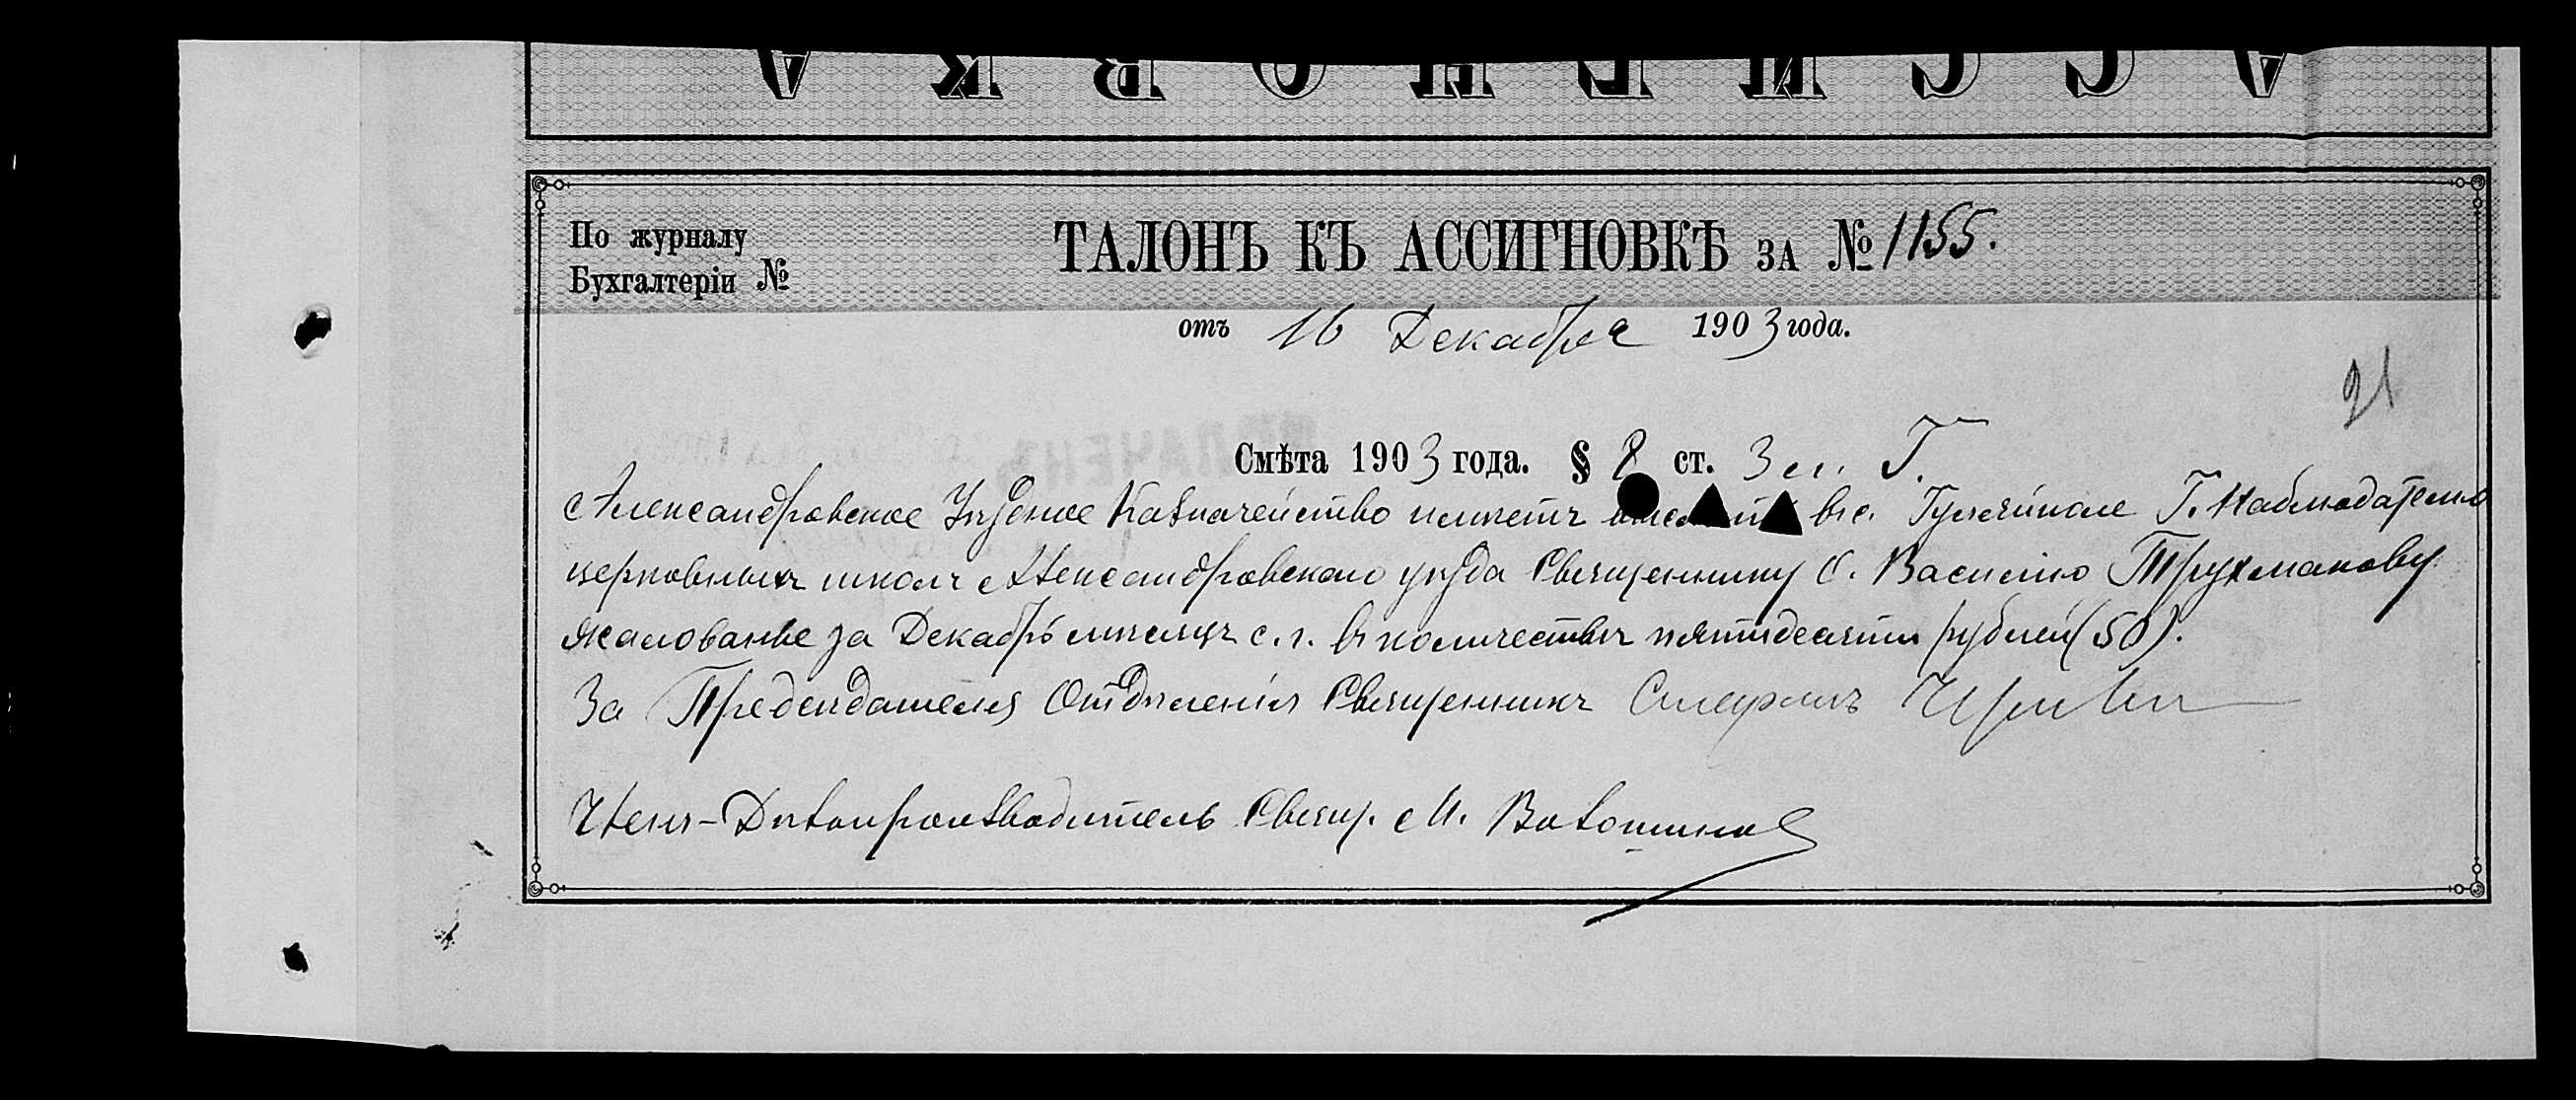 АССИГНОВКА
По журналу
Бухгалтеріи №
ТАЛОНЪ КЪ АССИГНОВКѢ ЗА № 1155.
отъ 16 Декабря 1903 года.
21
Смѣта 1903 года. § 8 ст. 3
Александровское Уѣздное Казначейство имѣетъ в с. Гуляйполе Г. Наблюдателю
церковныхъ школъ Александровскаго уѣзда Священнику О. Василію Трухманову
жалованье за Декабрь мѣсяцъ с. г. въ количествѣ пятидесяти рублей (50).
За Предсѣдателя Отдѣленія Священникъ
Членъ-Дѣлопроизводитель Свящ. М. Волошинов